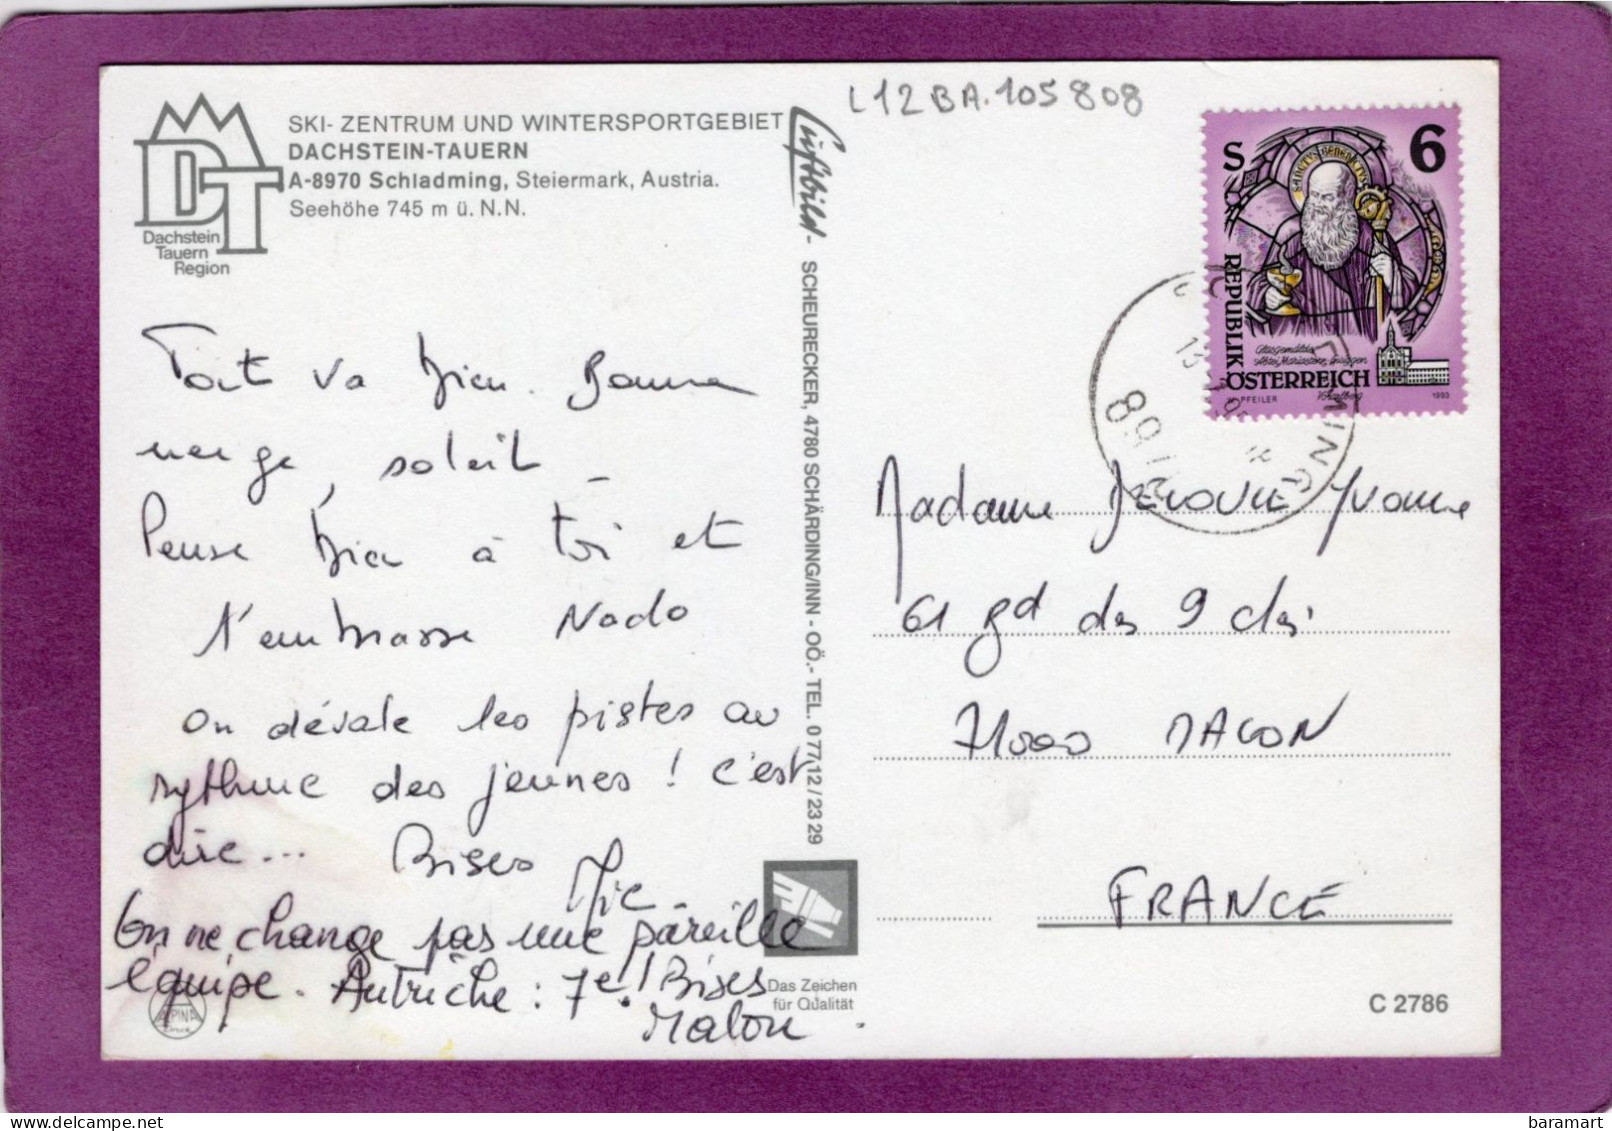 L12BA.105808
SKI- ZENTRUM UND WINTERSPORTGEBIET
DACHSTEIN-TAUERN
A-8970 Schladming, Steiermark, Austria.
Seehöhe 745 m ü. N.N.
DT
Dachstein
Tauern
Region
Tout va bien. Bonne
neige, soleil
Pense bien à toi et
t'embrasse Nado
On dévale les pistes au
rythme des jeunes ! c'est
dire... Bises
Mic
On ne change pas une pareille
équipe. Autriche : 7e! Bises
Malou
ALPINA
Luftbild- SCHEURECKER, 4780 SCHÄRDING/INN - OÖ.- TEL. 0 77 12 / 23 29
Das Zeichen
für Qualität
S 6
SANCTUS BENEDICTUS
REPUBLIK
ÖSTERREICH
W. PFEILER
Vorarlberg
1993
Madame Yvonne
61 gd des 9 clés
71000 MACON
FRANCE
C 2786
baramart